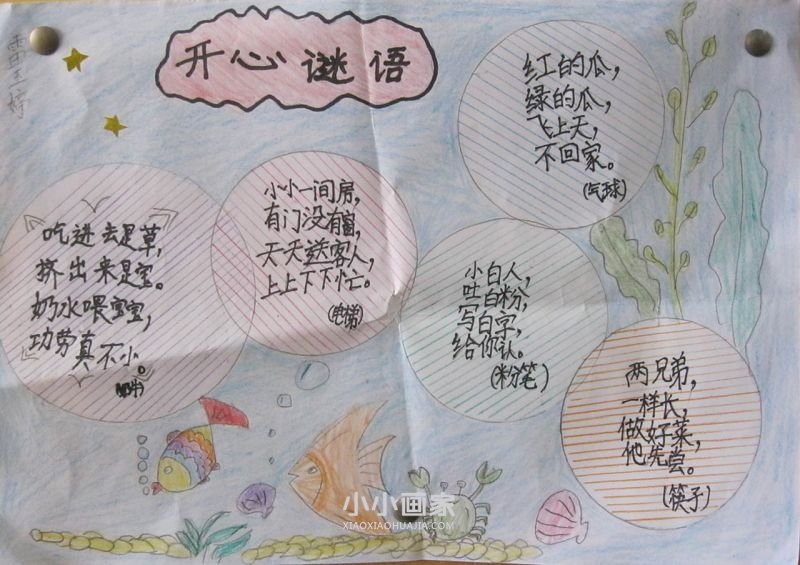 开心谜语
红的瓜，
绿的瓜，
飞上天，
不回家。
(气球)
小小一间房，
有门没有窗，
天天送客人，
上上下下忙。
(电梯)
吃进去是草，
挤出来是宝。
奶水喂宝宝，
功劳真不小。
小白人，
吐白粉，
写白字，
给你认。
(粉笔)
两兄弟，
一样长，
做好菜，
他先尝。
(筷子)
小小画家
XIAOXIAOHUAJIA.COM